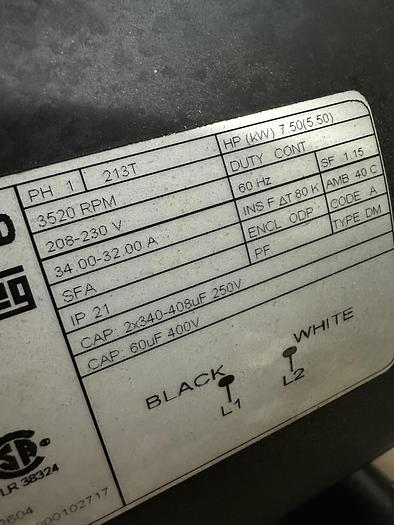 PH 1 213T HP (kW) 7.50(5.50)
3520 RPM DUTY CONT
208-230 V 60 Hz SF 1.15
34.00-32.00 A INS F ΔT 80 K AMB 40 C
SFA ENCL ODP CODE A
IP 21 PF TYPE DM
CAP: 2x340-408uF 250V
CAP: 60uF 400V
BLACK WHITE
L1 L2
LR 38324